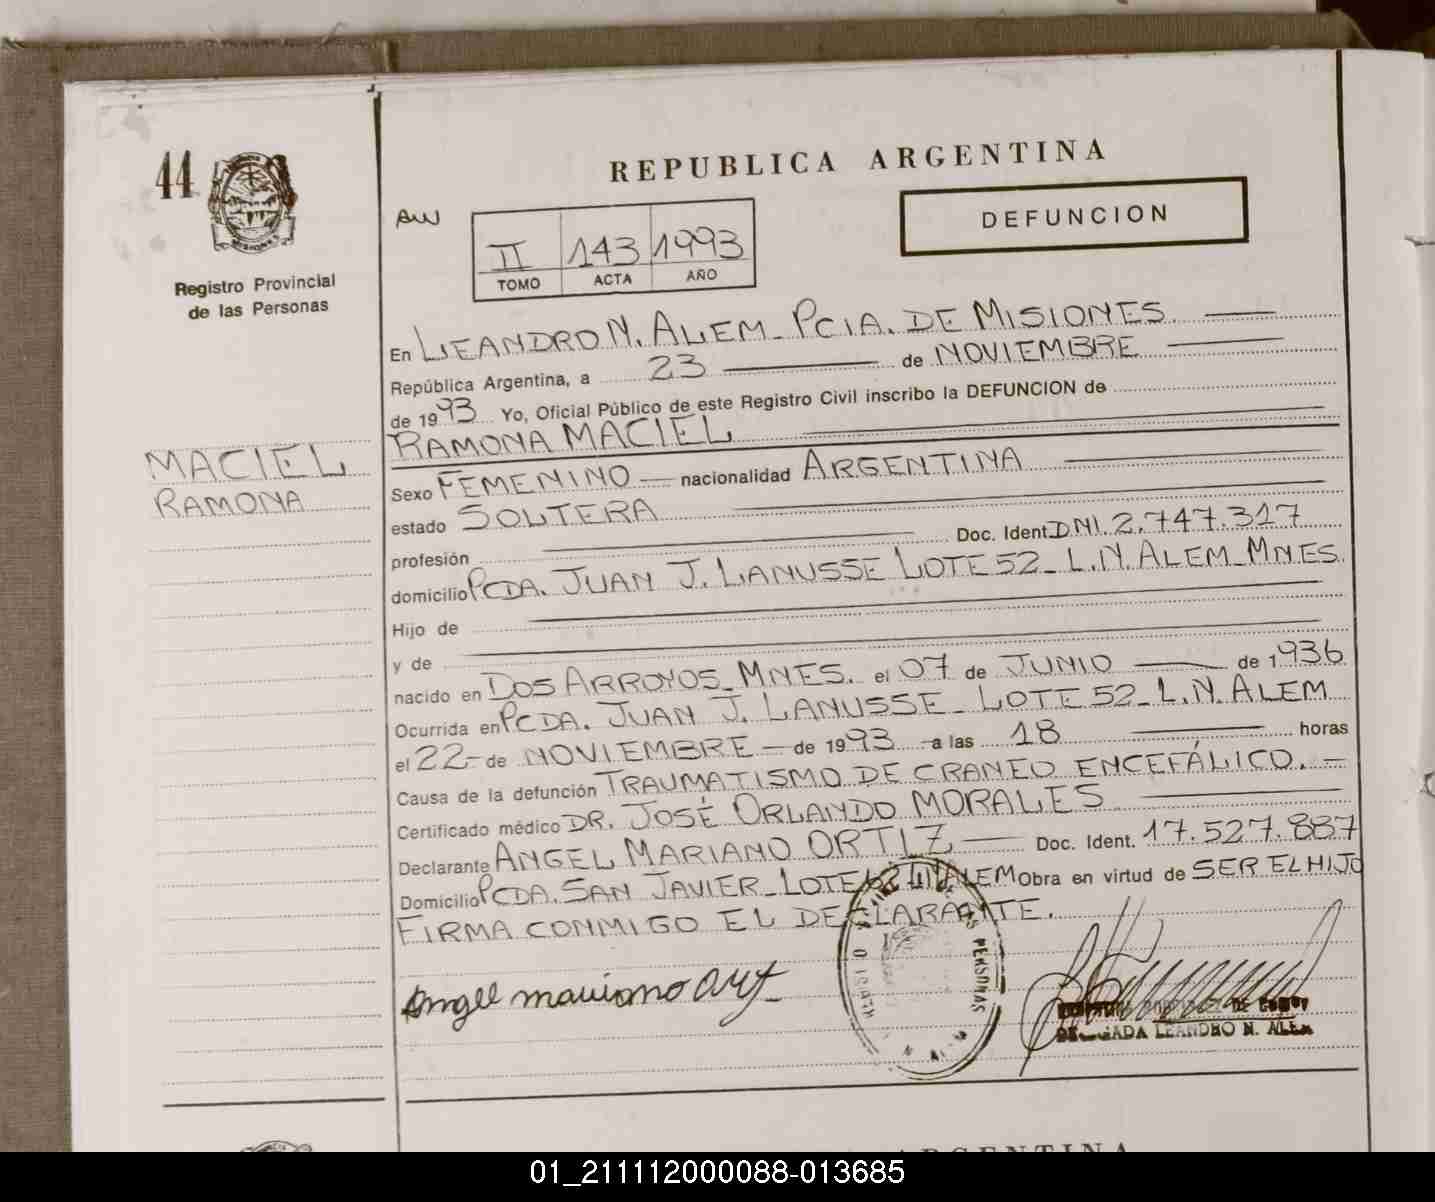 44
Registro Provincial
de las Personas
MACIEL
RAMONA
REPUBLICA ARGENTINA
DEFUNCION
II 143 1993
TOMO ACTA AÑO
En LEANDRO N. ALEM_ PCIA. DE MISIONES
República Argentina, a 23 de NOVIEMBRE
de 1993 Yo, Oficial Público de este Registro Civil inscribo la DEFUNCION de
RAMONA MACIEL
Sexo FEMENINO nacionalidad ARGENTINA
estado SOLTERA
profesión Doc. Ident. DNI. 2.747.317
domicilio PCDA. JUAN J. LANUSSE LOTE 52_ L.N. ALEM_MNES.
Hijo de
y de
nacido en DOS ARROYOS_MNES. el 07 de JUNIO de 1936
Ocurrida en PCDA. JUAN J. LANUSSE_ LOTE 52_ L.N. ALEM
el 22- de NOVIEMBRE - de 1993 a las 18 horas
Causa de la defunción TRAUMATISMO DE CRANEO ENCEFÁLICO. -
Certificado médico DR. JOSÉ ORLANDO MORALES
Declarante ANGEL MARIANO ORTIZ Doc. Ident. 17.527.887
Domicilio PCDA. SAN JAVIER_LOTE ALEM Obra en virtud de SER EL HIJO
FIRMA CONMIGO EL DECLARANTE.
Angel mariano
PERSONAS
DELEGADA LEANDRO N. ALEM
ARGENTINA
01_211112000088-013685